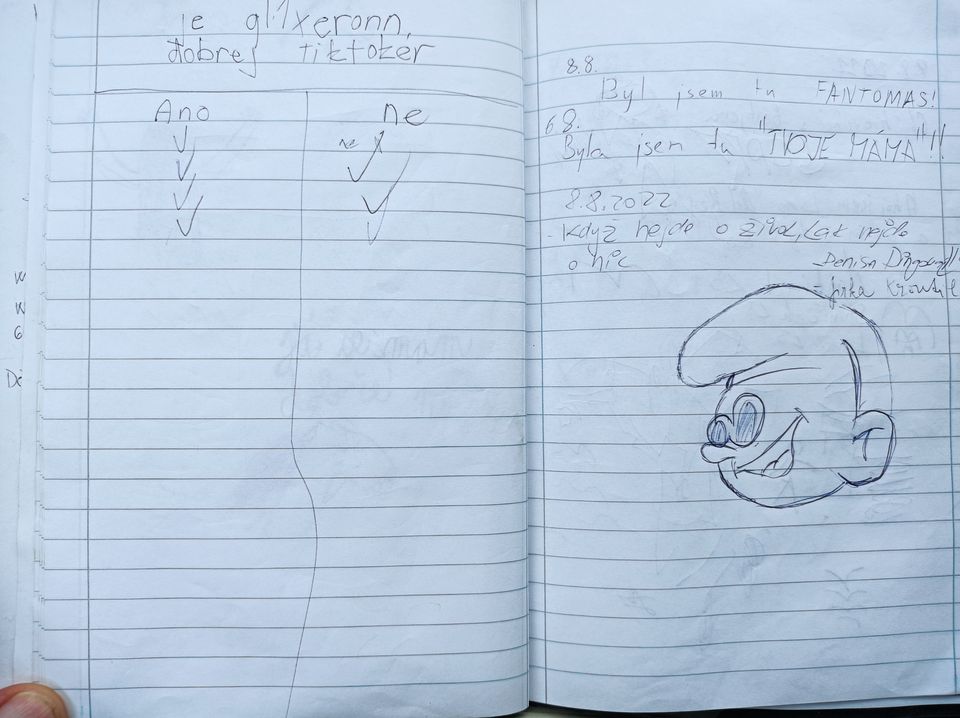 je gl1xeronn,
dobrej tiktoker
Ano
ne
ne
8.8.
Byl jsem tu FANTOMAS!
6 8.
Byla jsen tu "TVOJE MÁMA"!!
8.8.2022
- Když nejde o život, tak nejde
o nic
- Denisa
- Jirka